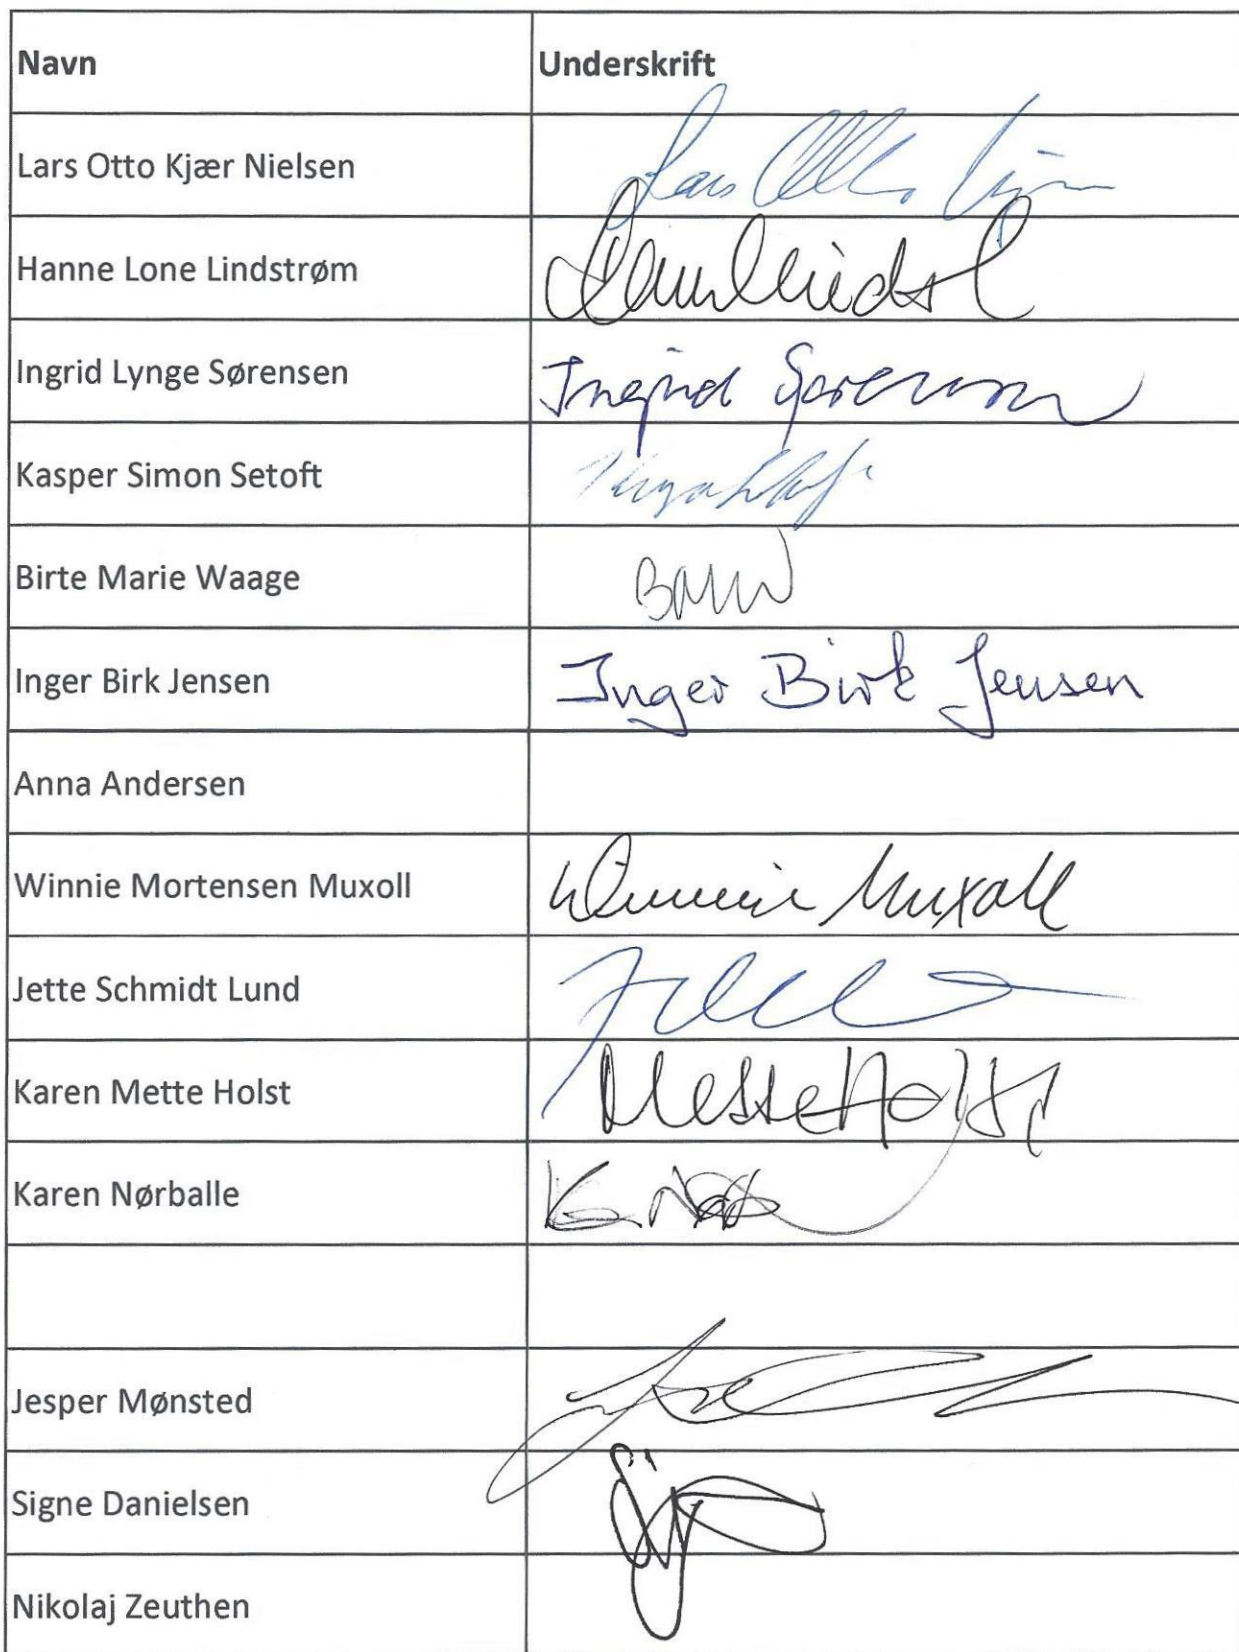 Navn Underskrift
Lars Otto Kjær Nielsen Lars Otto
Hanne Lone Lindstrøm
Ingrid Lynge Sørensen Ingrid Sørensen
Kasper Simon Setoft
Birte Marie Waage BMW
Inger Birk Jensen Inger Birk Jensen
Anna Andersen
Winnie Mortensen Muxoll Winnie Muxoll
Jette Schmidt Lund
Karen Mette Holst Mette Holst
Karen Nørballe
Jesper Mønsted
Signe Danielsen
Nikolaj Zeuthen